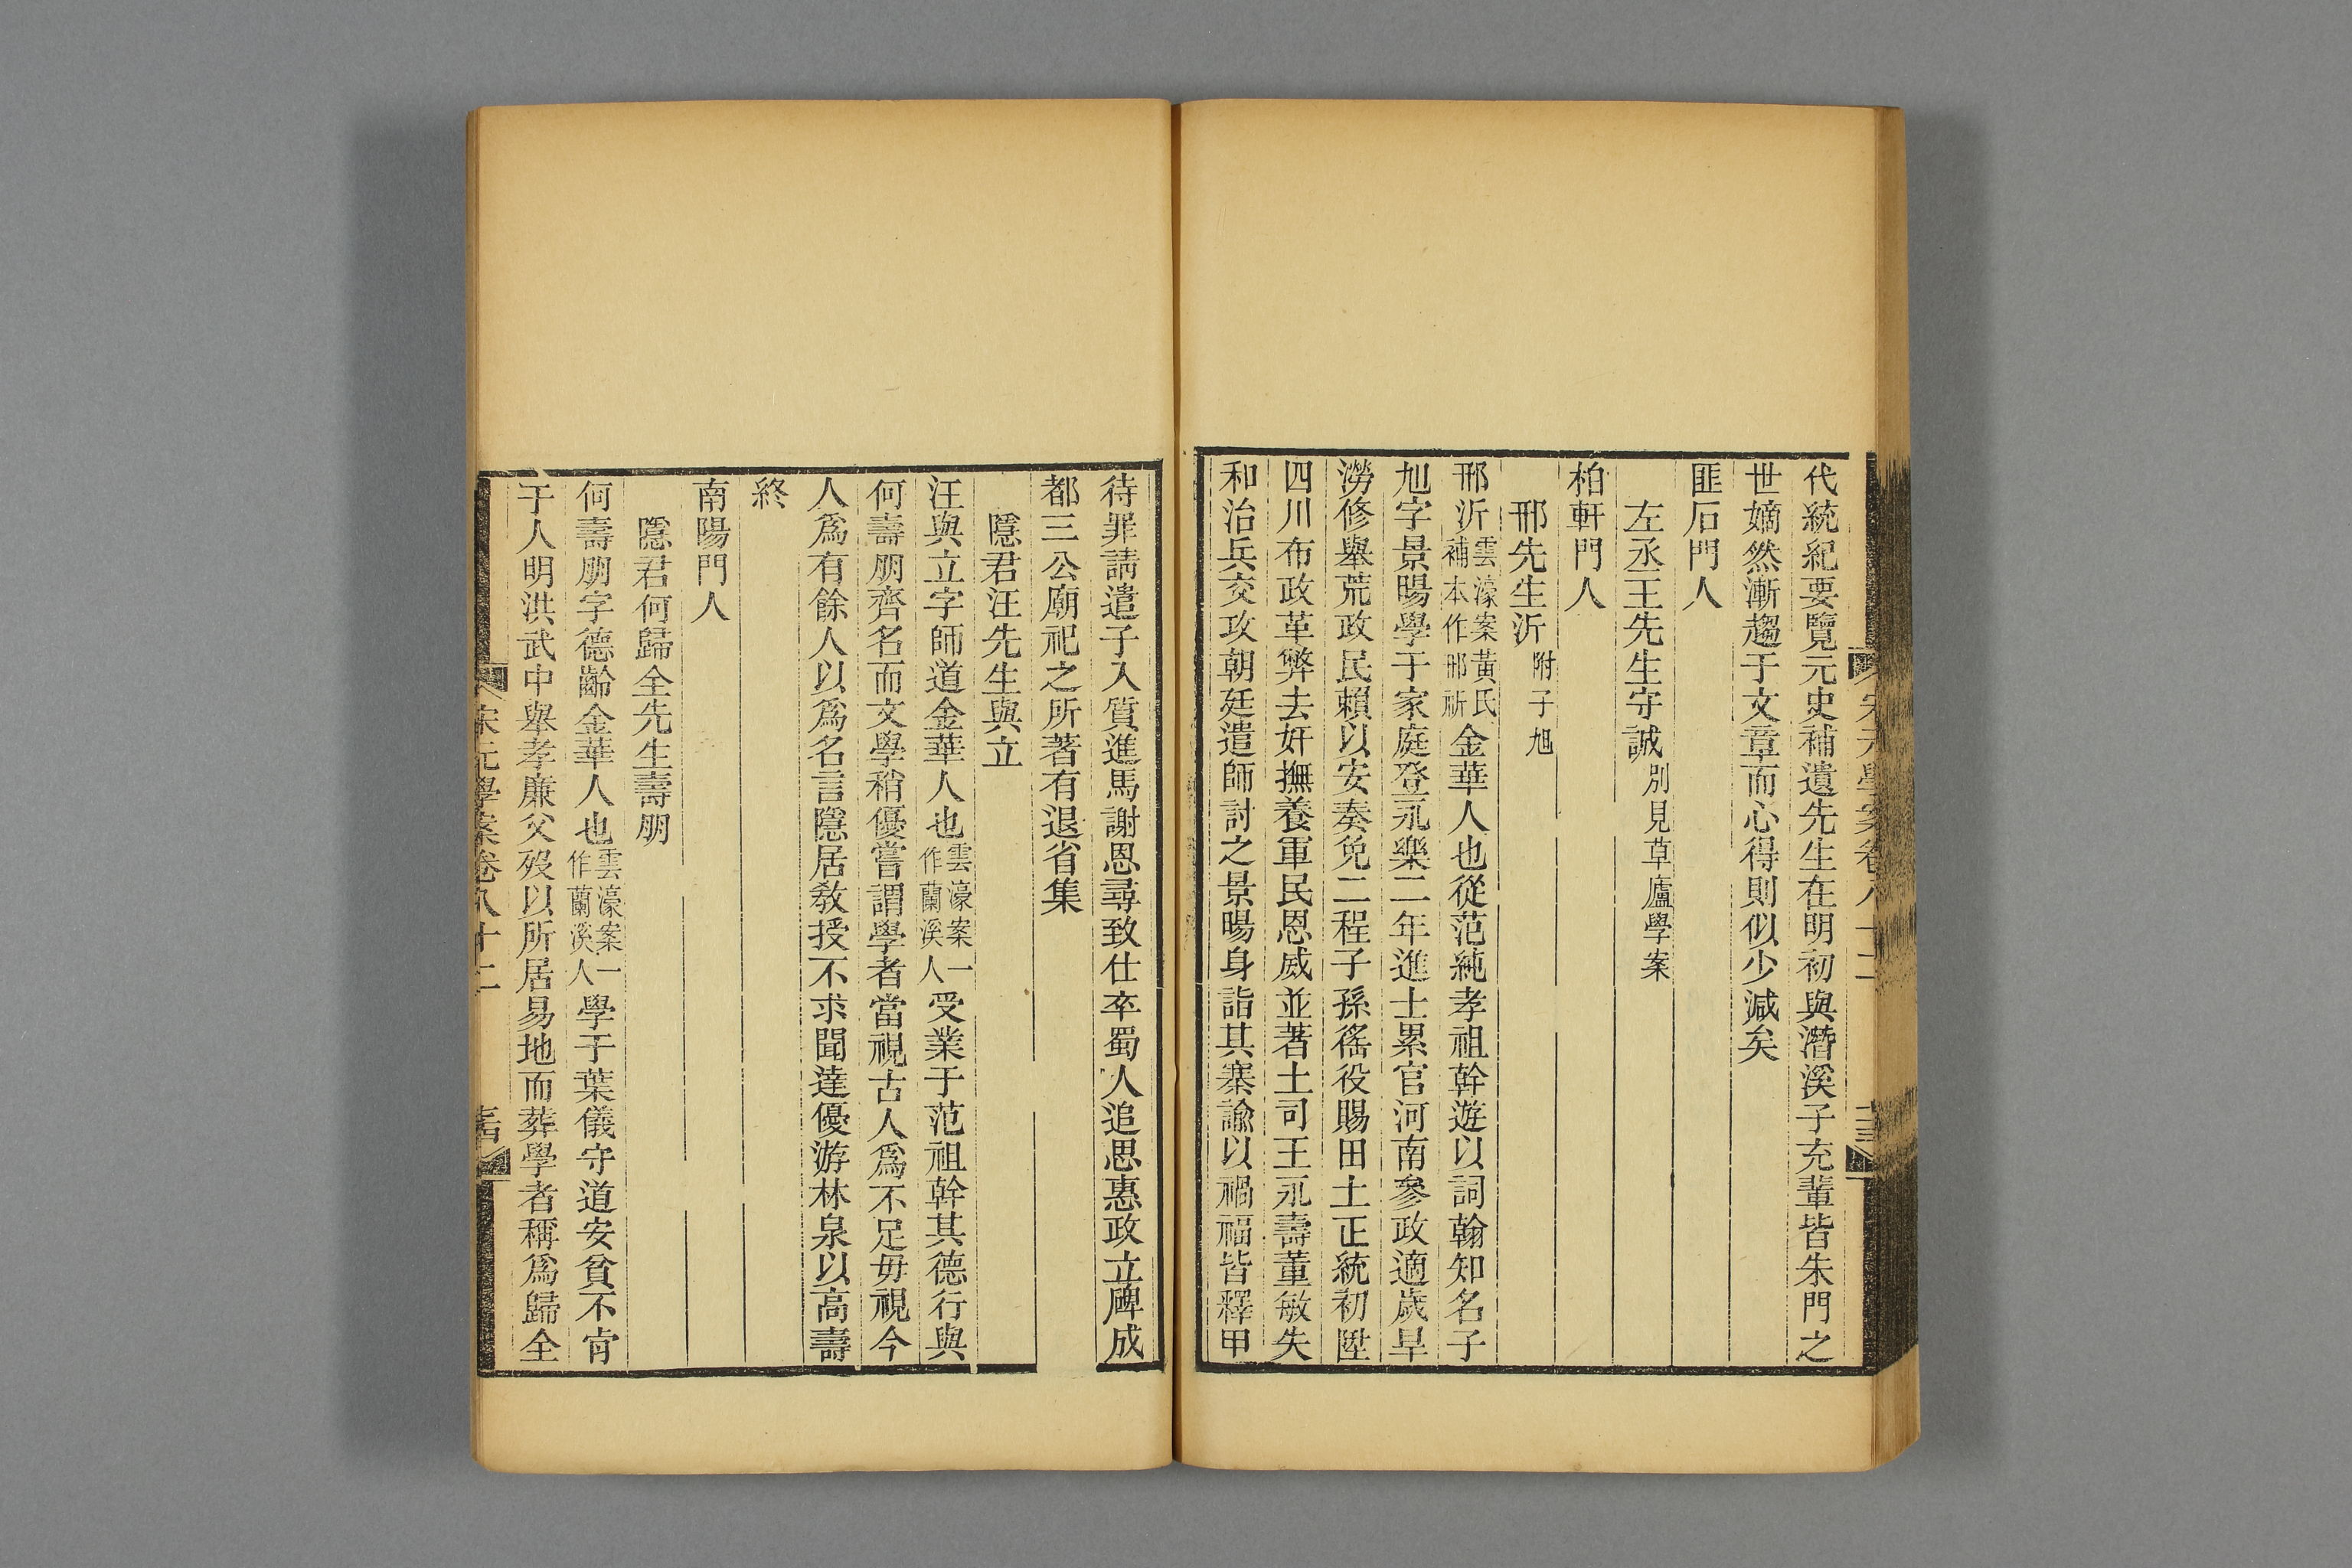 代統紀要覽元史補遺先生在明初與潛溪子充輩皆朱門之
世嫡然漸趨于文章而心得則似少減矣
匪石門人
左丞王先生守誠別見草廬學案
柏軒門人
邢先生沂附子旭
邢沂雲濠案黃氏補本作邢祈金華人也從范純孝祖幹遊以詞翰知名子
旭字景暘學于家庭登永樂二年進士累官河南參政適歲旱
澇修舉荒政民賴以安奏免二程子孫徭役賜田土正統初陞
四川布政革弊去奸撫養軍民恩威並著土司王永壽董敏失
和治兵交攻朝廷遣師討之景暘身詣其寨諭以禍福皆釋甲
待罪請遣子入質進馬謝恩尋致仕卒蜀人追思惠政立碑成
都三公廟祀之所著有退省集
隱君汪先生與立
汪與立字師道金華人也雲濠案一作蘭溪人受業于范祖幹其德行與
何壽朋齊名而文學稍優嘗謂學者當視古人爲不足毋視今
人爲有餘人以爲名言隱居敎授不求聞達優游林泉以高壽
終
南陽門人
隱君何歸全先生壽朋
何壽朋字德齡金華人也雲濠案一作蘭溪人學于葉儀守道安貧不肯
于人明洪武中舉孝廉父歿以所居易地而葬學者稱爲歸全
宋元學案卷八十二